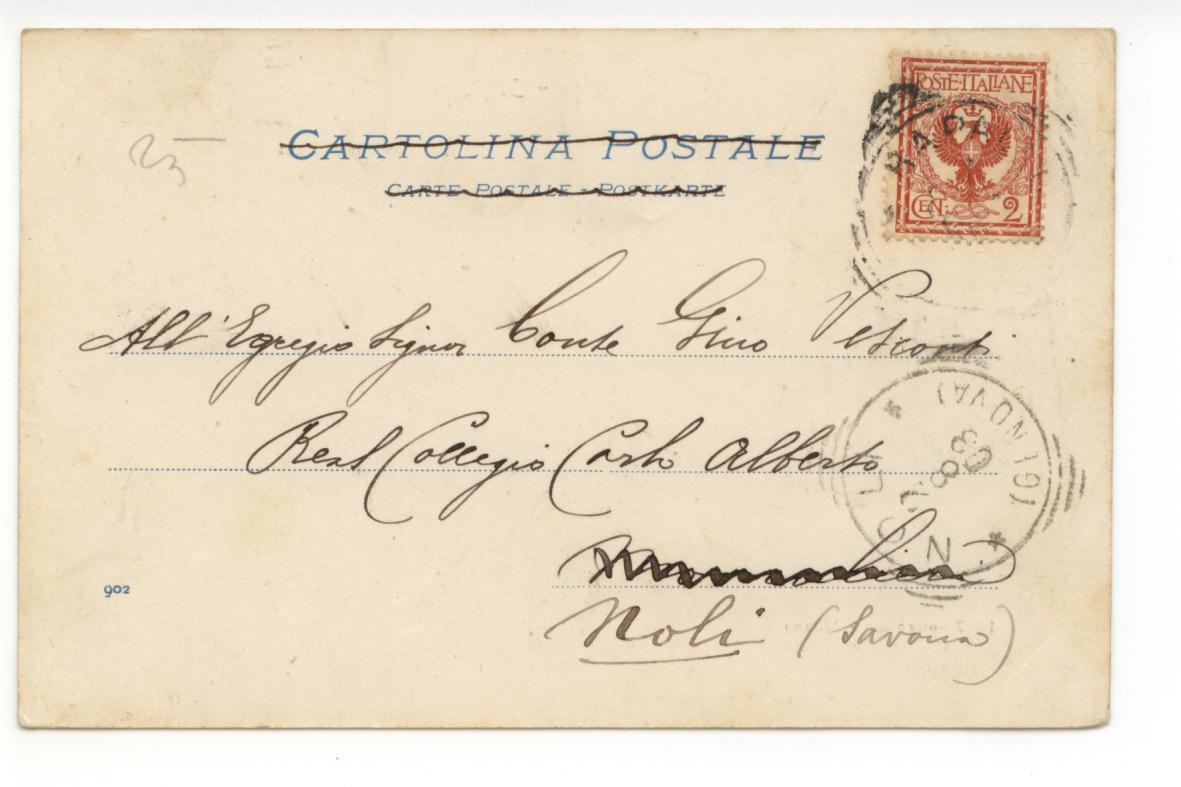 25
CARTOLINA POSTALE
CARTE POSTALE - POSTKARTE
POSTE·ITALIANE
CEN: 2
All' Egregio Signor Conte Gino Visconti
Real Collegio Carlo Alberto
NOLI (GENOVA)
8
03
902
Noli (Savona)